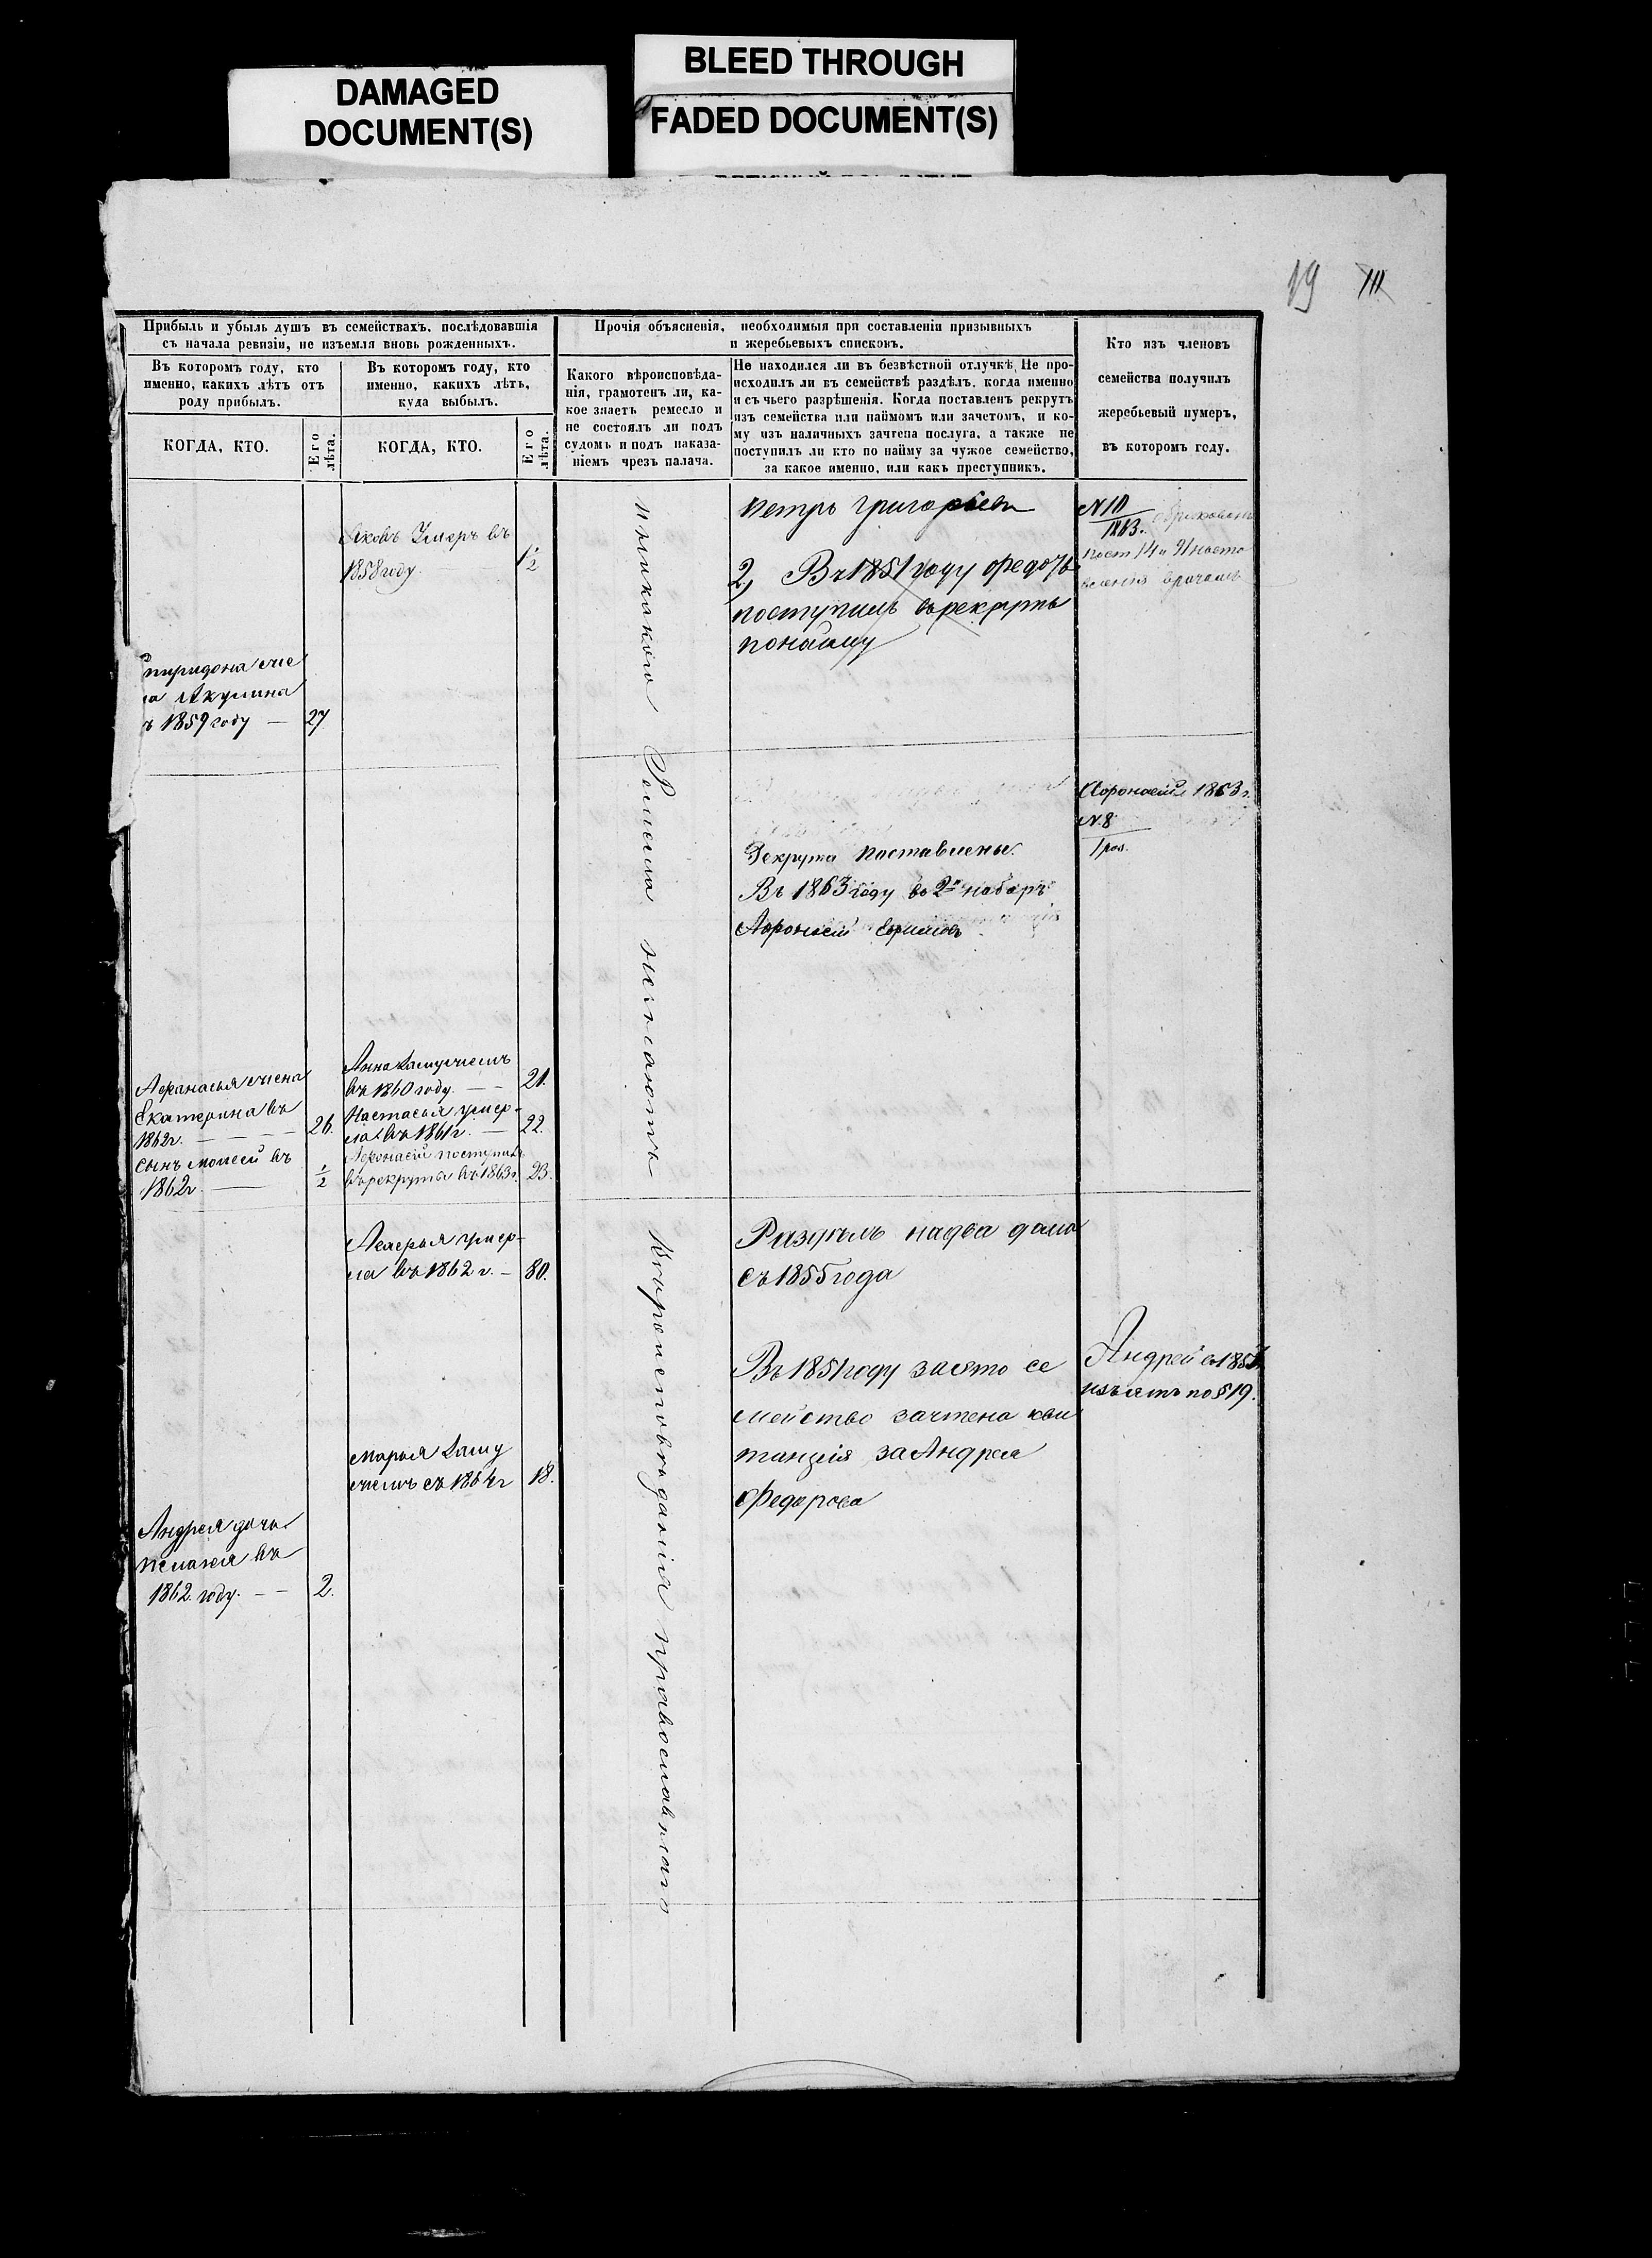 DAMAGED
DOCUMENT(S)
BLEED THROUGH
FADED DOCUMENT(S)
19
Прибыль и убыль душъ въ семействахъ, послѣдовавшія
съ начала ревизіи, не изъемля вновь рожденныхъ.
Въ которомъ году, кто
именно, какихъ лѣтъ отъ
роду прибылъ.
Въ которомъ году, кто
именно, какихъ лѣтъ,
куда выбылъ.
КОГДА, КТО.
Его
лѣта.
КОГДА, КТО.
Его
лѣта.
Прочія объясненія, необходимыя при составленіи призывныхъ
и жеребьевыхъ списковъ.
Какого вѣроисповѣда-
нія, грамотенъ ли, ка-
кое знаетъ ремесло и
не состоялъ ли подъ
судомъ и подъ наказа-
ніемъ чрезъ палача.
Не находился ли въ безвѣстной отлучкѣ. Не про-
исходилъ ли въ семействѣ раздѣлъ, когда именно
и съ чьего разрѣшенія. Когда поставленъ рекрутъ
изъ семейства или наймомъ или зачетомъ, и ко-
му изъ наличныхъ зачтена послуга, а также не
поступилъ ли кто по найму за чужое семейство,
за какое именно, или какъ преступникъ.
Кто изъ членовъ
семейства получилъ
жеребьевый нумеръ,
въ которомъ году.
Яковъ Умеръ въ
1858 году. 1/2
пиридона же
на Акулина
ъ 1859 году — 27
Петръ Григорьевъ
2, Въ 1851 году Федотъ
поступилъ въ рекруты
по найму
N 10
1863.
Афонасій 1863 г.
N. 8
Рекрута поставлены
Въ 1863 году во 2й наборъ
Афонасій
Афанасья жена
Екатерина въ
1862 г. — — — 26.
Сынъ Моисей въ
1862 г. — 1/2
Анна Замужемъ
въ 1860 году. — — 21.
Настасья умер-
ла въ 1861 г. — 22.
Афонасій поступилъ
въ рекруты въ 1863 г. 23.
умер-
ла въ 1862 г. — 80.
Раздѣлъ на два дома
съ 1855 года
Въ 1851 году за это се
мейство зачтена кви
танція за Андрея
Федорова
Андрей въ
изъятъ по § 19.
Марья Заму
жемъ съ 1864 г 18.
Андрея дочь
Пелагея въ
1862 году. — — 2.
никакого Ремесла незнаютъ
Вѣроисповѣданія православнаго